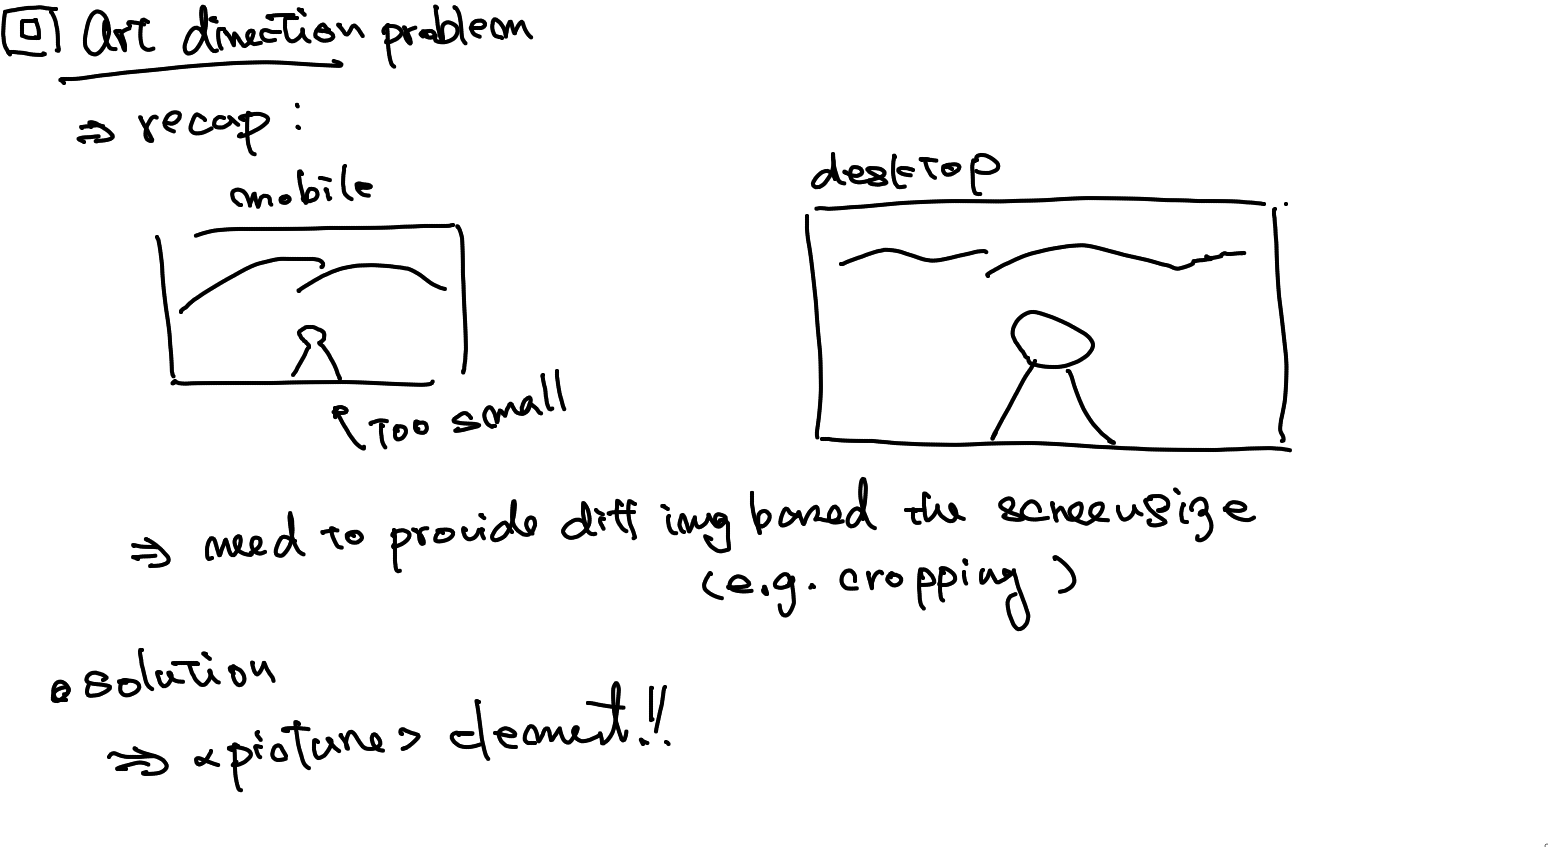 Art direction problem
⇒ recap:
mobile
desktop
too small
⇒ need to provide diff img based the screensize
(e.g. cropping)
solution
⇒ <picture> element!!